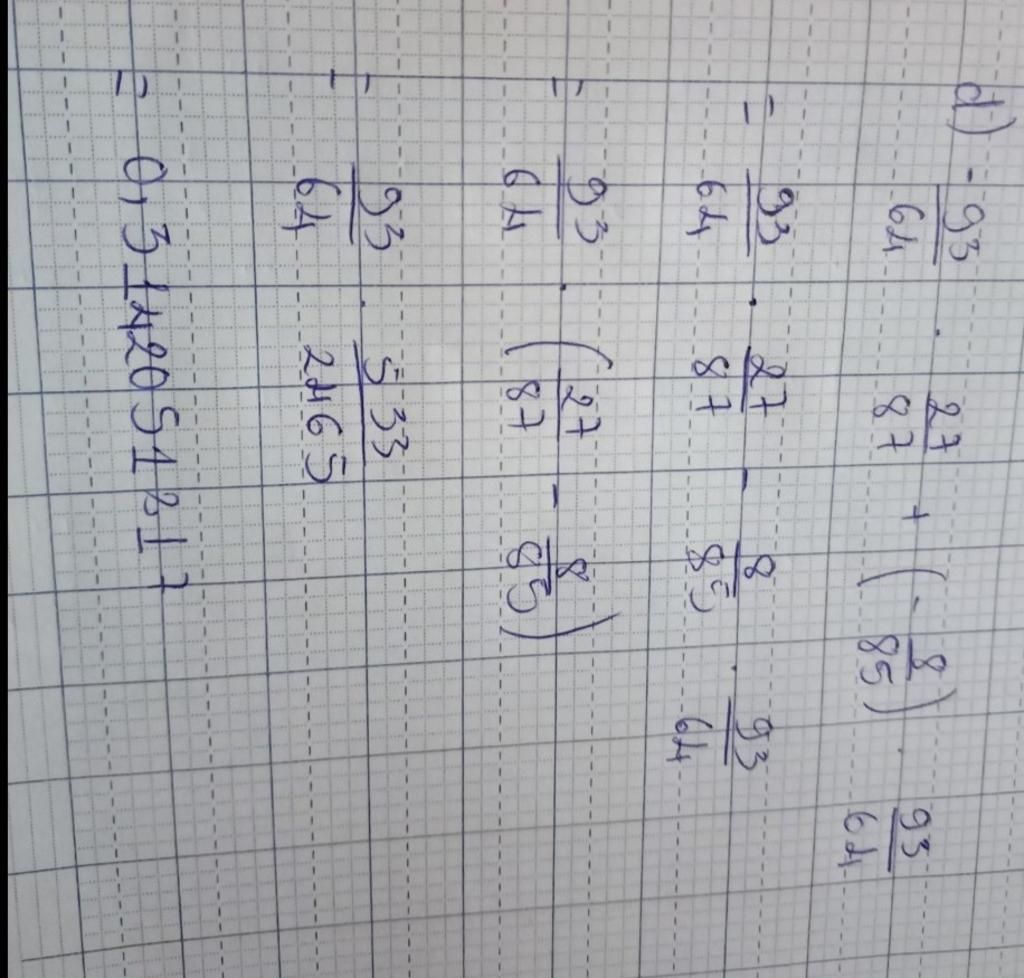 d) -93/64 · 27/87 + (-8/85) · 93/64
= 93/64 · 27/87 - 8/85 · 93/64
= 93/64 · (27/87 - 8/85)
= 93/64 · 533/2465
= 0,3142051817